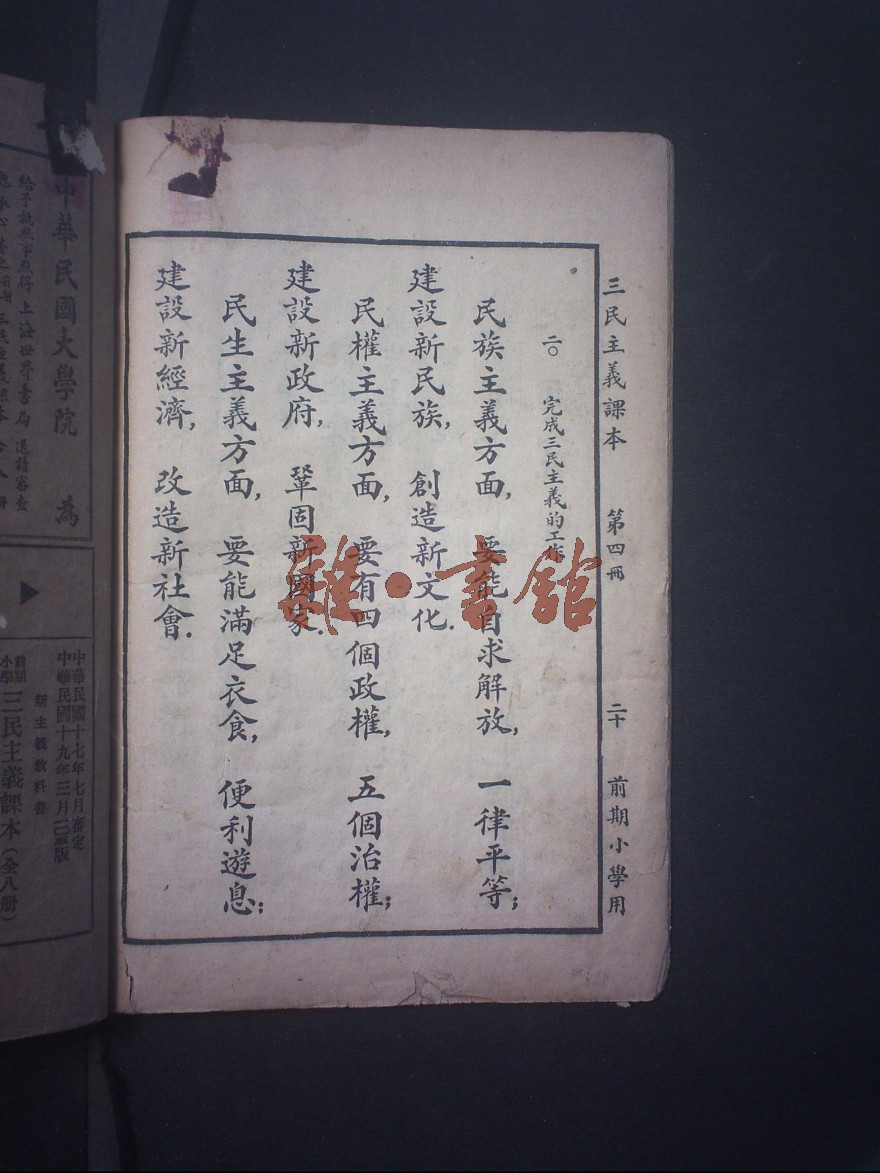 三民主義課本 第四冊 二十 前期小學用
二〇 完成三民主義的工作
民族主義方面，要能自求解放，一律平等；
建設新民族，創造新文化．
民權主義方面，要有四個政權，五個治權；
建設新政府，鞏固新國家．
民生主義方面，要能滿足衣食，便利遊息；
建設新經濟，改造新社會．
雜·書館
中華民國大學院 為
上海世界書局
中華民國十七年七月審定
中華民國十九年三月一〇五版
新主義教科書
前期小學 三民主義課本（全八册）